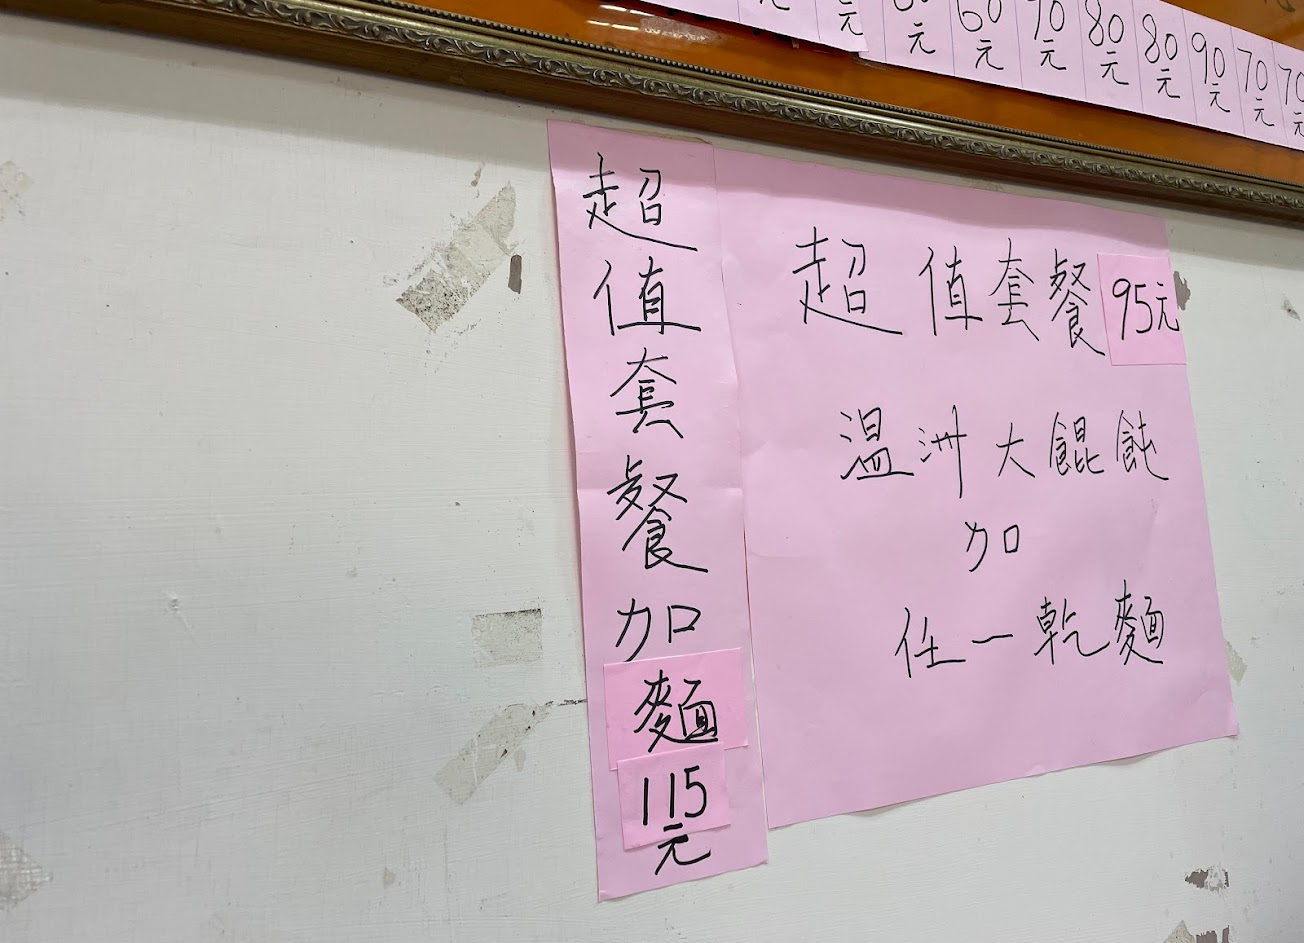 60元
70元
80元
80元
90元
70元
超值套餐加麵115元
超值套餐95元
溫洲大餛飩
加
任一乾麵